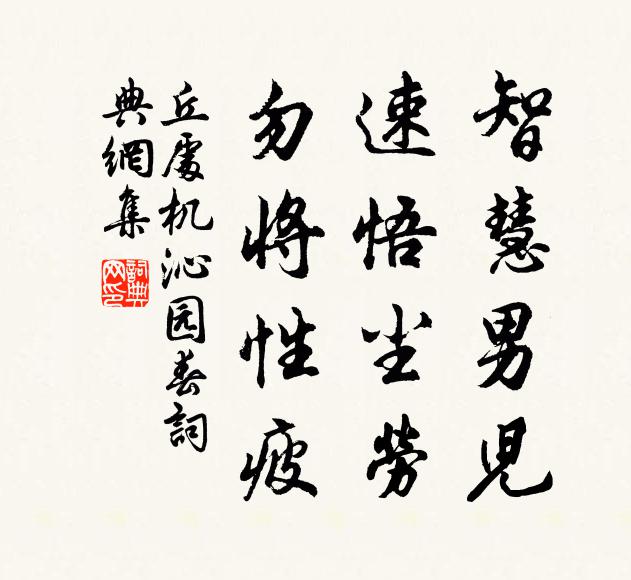 智慧男児
速悟尘勞
勿将性疲
丘處机沁园春詞
典網集
詞典網印